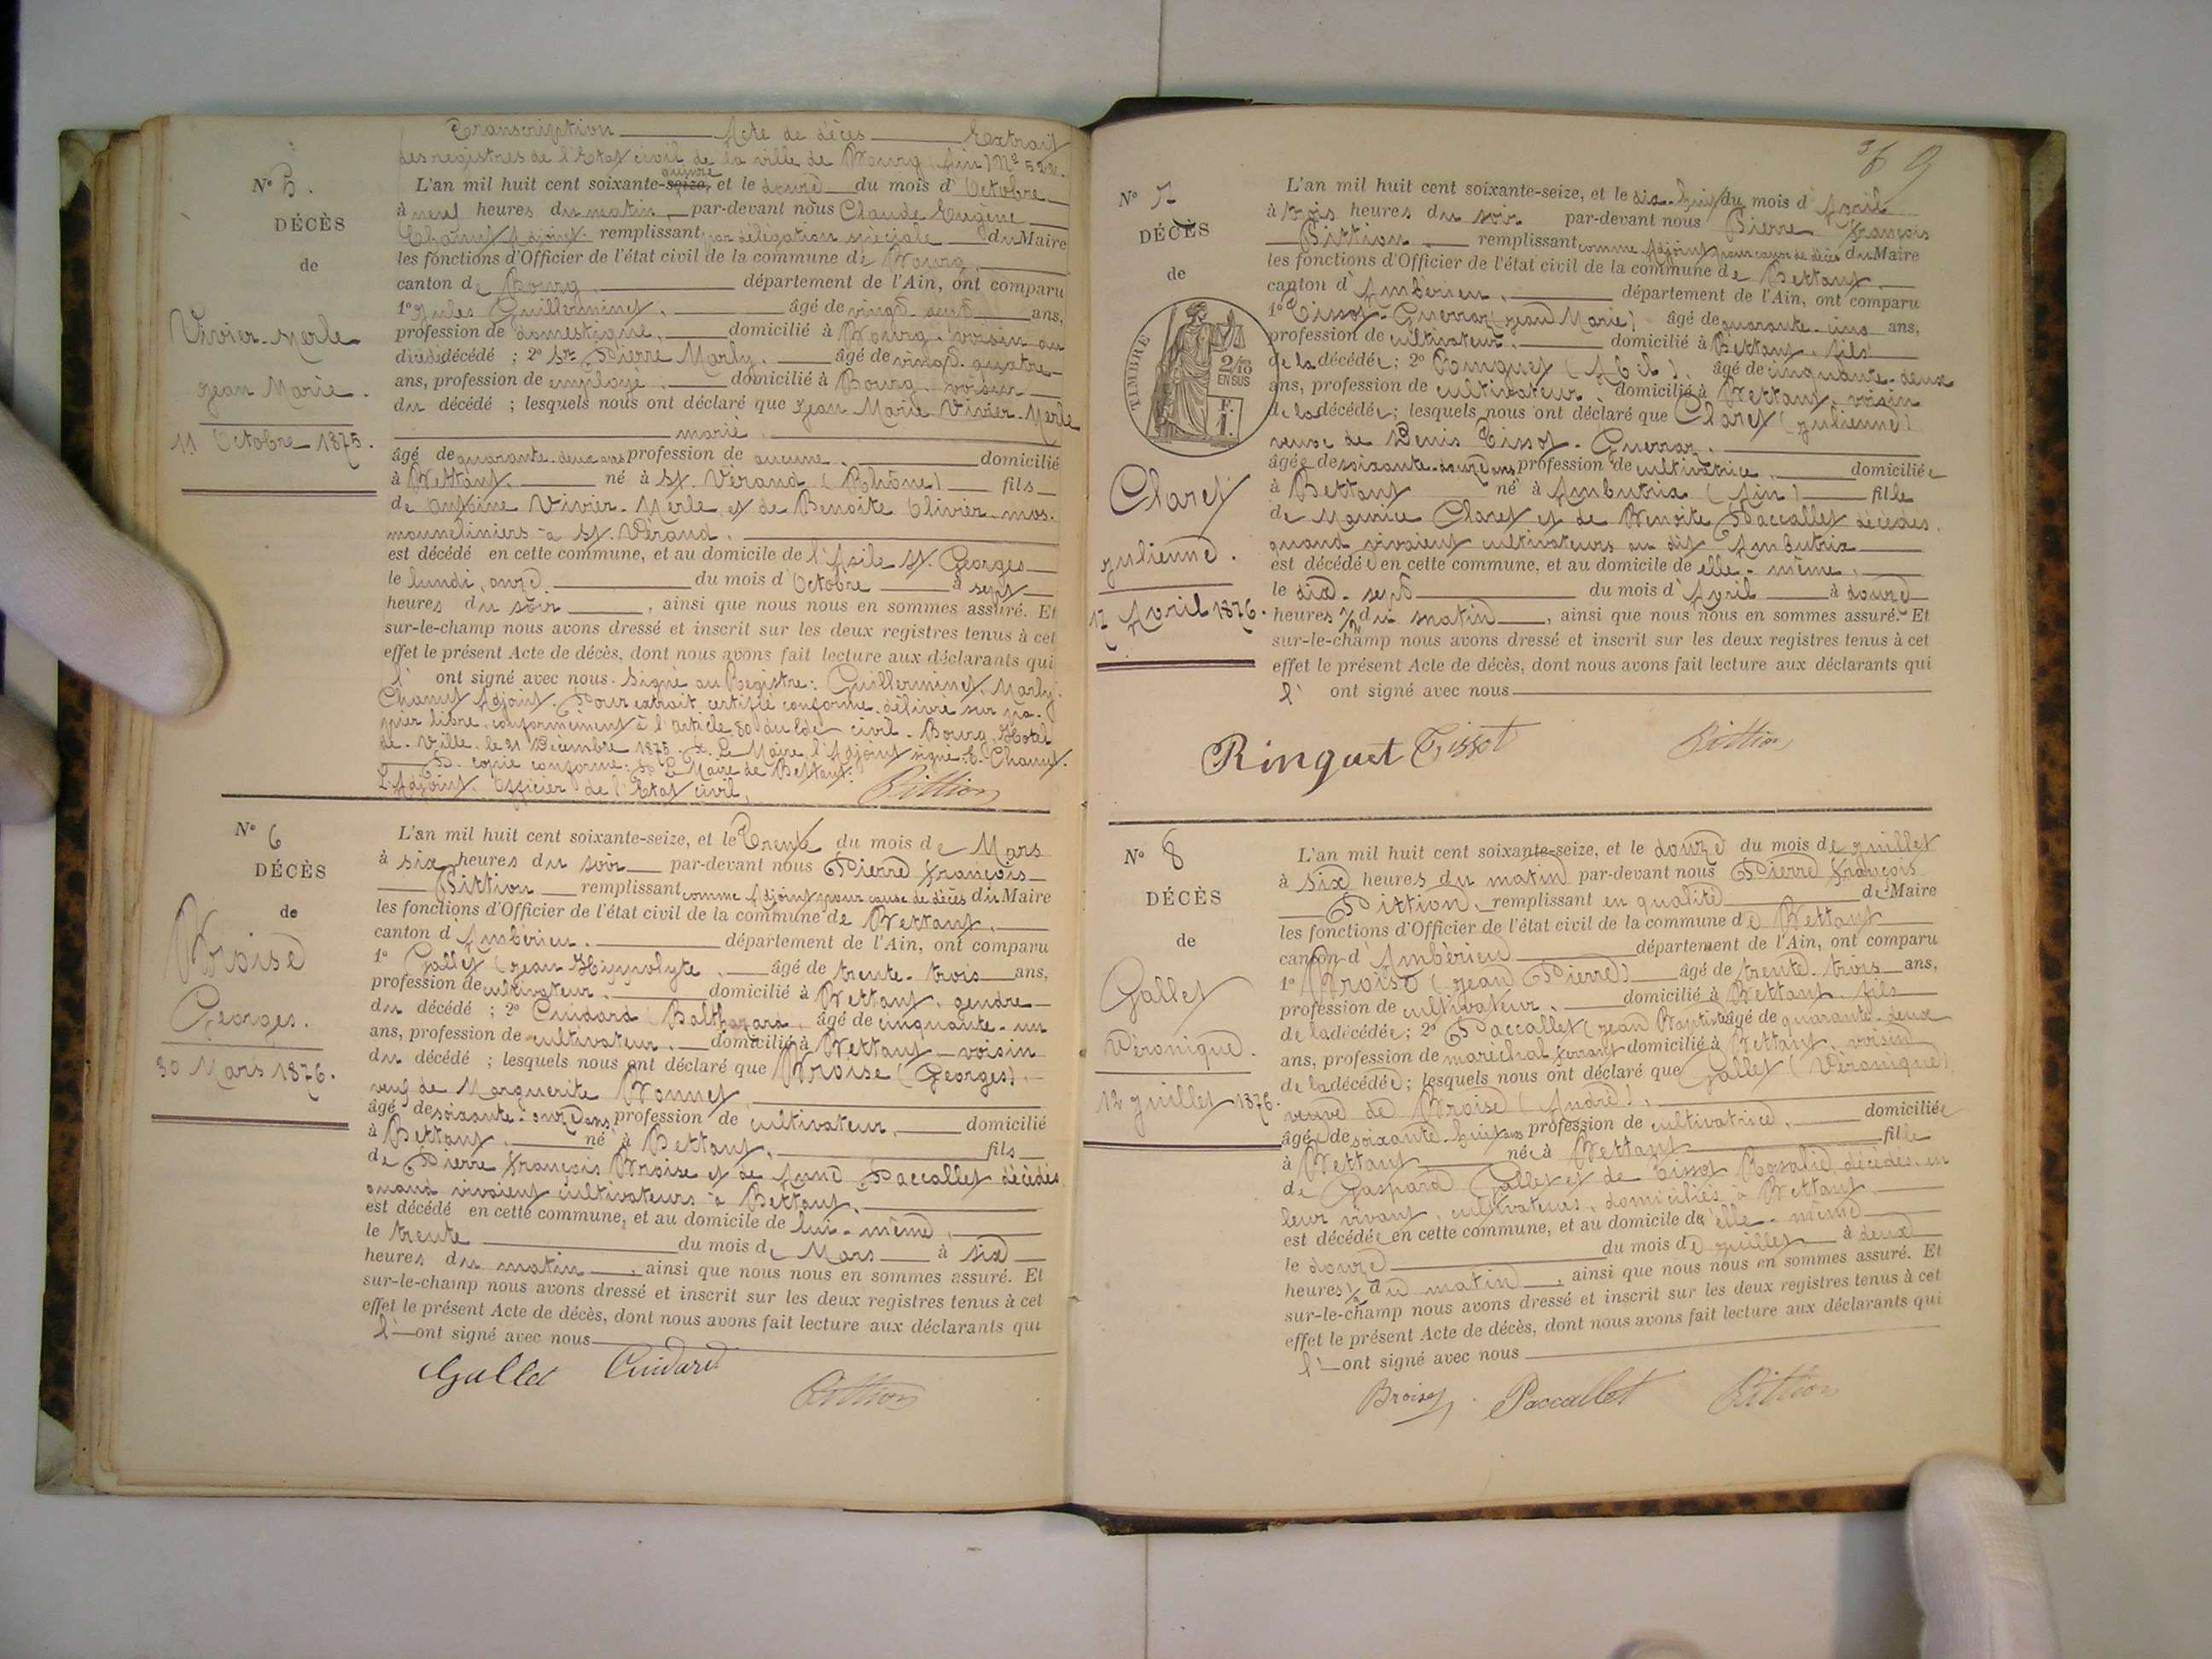 Transcription Acte de décès Extrait
des registres de l'Etat civil de la ville de Bourg (Ain) N° 522.
N° 5.
DÉCÈS
de
Vivier-Merle
Jean Marie.
11 Octobre 1875.
quinze
L'an mil huit cent soixante-seize, et le douze du mois d'Octobre
à neuf heures du matin par-devant nous Claude Eugène
Chanut Adjoint remplissant par délégation spéciale du Maire
les fonctions d'Officier de l'état civil de la commune de Bourg
canton de Bourg, département de l'Ain, ont comparu
1° Jules Guillerminet, âgé de vingt ans,
profession de domestique, domicilié à Bourg, voisin du
décédé ; 2° Sr Pierre Marly, âgé de vingt-quatre
ans, profession de employé, domicilié à Bourg, voisin
du décédé ; lesquels nous ont déclaré que Jean Marie Vivier-Merle
marié,
âgé de quarante-deux ans profession de aucune, domicilié
à Bettant, né à St. Vérand (Rhône) fils
de Antoine Vivier-Merle, et de Benoite Olivier
à St. Vérand.
est décédé en cette commune, et au domicile de l'Asile St. Georges
le lundi, onze du mois d'Octobre à sept
heures du soir, ainsi que nous nous en sommes assuré. Et
sur-le-champ nous avons dressé et inscrit sur les deux registres tenus à cet
effet le présent Acte de décès, dont nous avons fait lecture aux déclarants qui
l' ont signé avec nous. Signé au Registre: Guillerminet, Marly,
Chanut Adjoint. Pour extrait certifié conforme, délivré sur pa-
pier libre, conformément à l'article 80 du Code civil. Bourg, Hotel
de-Ville, le 31 Décembre 1875. Le Maire, l'Adjoint signé: E. Chanut.
Pr. copie conforme: Pr Le Maire de Bettant:
L'Adjoint, Officier de l'Etat civil,
Pittion
N° 6
DÉCÈS
de
Broise
Georges.
30 Mars 1876.
L'an mil huit cent soixante-seize, et le Trente du mois de Mars
à six heures du soir par-devant nous Pierre François
Pittion remplissant comme Adjoint pour cause de décès du Maire
les fonctions d'Officier de l'état civil de la commune de Bettant,
canton d'Ambérieu, département de l'Ain, ont comparu
1° Gallet (Jean Hippolyte, âgé de trente-trois ans,
profession de cultivateur, domicilié à Bettant, gendre
du décédé ; 2° Cuidard Balthazard, âgé de cinquante-un
ans, profession de cultivateur, domicilié à Bettant voisin
du décédé ; lesquels nous ont déclaré que Broise (Georges),
veuf de Marguerite Bonnet,
âgé de soixante-onze ans, profession de cultivateur, domicilié
à Bettant, né à Bettant, fils
de Pierre François Broise et de Anne Paccallet décédés
quand vivaient cultivateurs à Bettant,
est décédé en cette commune, et au domicile de lui-même,
le trente du mois de Mars à six
heures du matin, ainsi que nous nous en sommes assuré. Et
sur-le-champ nous avons dressé et inscrit sur les deux registres tenus à cet
effet le présent Acte de décès, dont nous avons fait lecture aux déclarants qui
l' ont signé avec nous
Gallet Cuidard Pittion
9
N° 7
DÉCÈS
de
TIMBRE
2/10
EN SUS
F.
1.
Claret
Julienne.
17 Avril 1876.
L'an mil huit cent soixante-seize, et le dix-huit du mois d'Avril
à trois heures du soir par-devant nous Pierre François
Pittion remplissant comme Adjoint pour cause de décès du Maire
les fonctions d'Officier de l'état civil de la commune de Bettant,
canton d'Ambérieu, département de l'Ain, ont comparu
1° Tissot-Guerraz (Jean Marie) âgé de quarante-cinq ans,
profession de cultivateur, domicilié à Bettant, fils
de la décédée ; 2° Ringuet (Abel), âgé de cinquante-deux
ans, profession de cultivateur domicilié à Bettant, voisin
de la décédée ; lesquels nous ont déclaré que Claret (Julienne)
veuve de Denis Tissot-Guerraz,
âgée de soixante-douze ans profession de cultivatrice, domiciliée
à Bettant né à Ambutrix (Ain) fille
de Maurice Claret et de Benoite Paccallet décédés,
quand vivaient cultivateurs au dit Ambutrix
est décédée en cette commune, et au domicile de elle-même,
le dix-sept du mois d'Avril à douze
heures 1/2 du matin, ainsi que nous nous en sommes assuré. Et
sur-le-champ nous avons dressé et inscrit sur les deux registres tenus à cet
effet le présent Acte de décès, dont nous avons fait lecture aux déclarants qui
l' ont signé avec nous
Ringuet Tissot Pittion
N° 8
DÉCÈS
de
Gallet
Véronique.
12 Juillet 1876.
L'an mil huit cent soixante-seize, et le douze du mois de Juillet
à six heures du matin par-devant nous Pierre François
Pittion, remplissant en qualité de Maire
les fonctions d'Officier de l'état civil de la commune de Bettant
canton d'Ambérieu département de l'Ain, ont comparu
1° Broise (Jean Pierre) âgé de trente-trois ans,
profession de cultivateur, domicilié à Bettant, fils
de la décédée ; 2° Paccallet (Jean Baptiste âgé de quarante-deux
ans, profession de maréchal ferrant domicilié à Bettant, voisin
de la décédée ; lesquels nous ont déclaré que Gallet (Véronique)
veuve de Broise (André),
âgée de soixante-huit ans profession de cultivatrice, domiciliée
à Bettant née à Bettant fille
de Gaspard Gallet et de Tissot Rosalie, décédés, en
leur vivant, cultivateurs, domiciliés à Bettant,
est décédée en cette commune, et au domicile de elle-même
le douze du mois de Juillet à deux
heures 1/2 du matin, ainsi que nous nous en sommes assuré. Et
sur-le-champ nous avons dressé et inscrit sur les deux registres tenus à cet
effet le présent Acte de décès, dont nous avons fait lecture aux déclarants qui
l' ont signé avec nous
Broise Paccallet Pittion